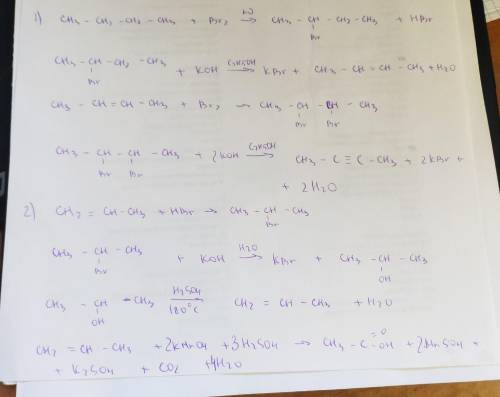 1) CH₃ – CH₂ – CH₂ – CH₃ + Br₂ →(hν) CH₃ – CH – CH₂ – CH₃ + HBr
Br
CH₃ – CH – CH₂ – CH₃ + KOH →(C₂H₅OH) KBr + CH₃ – CH = CH – CH₃ + H₂O
Br
CH₃ – CH = CH – CH₃ + Br₂ → CH₃ – CH – CH – CH₃
Br Br
CH₃ – CH – CH – CH₃ + 2KOH →(C₂H₅OH) CH₃ – C ≡ C – CH₃ + 2KBr +
Br Br
+ 2H₂O
2) CH₂ = CH – CH₃ + HBr → CH₃ – CH – CH₃
Br
CH₃ – CH – CH₃ + KOH →(H₂O) KBr + CH₃ – CH – CH₃
Br OH
CH₃ – CH – CH₃ (H₂SO₄ / 180°C) CH₂ = CH – CH₃ + H₂O
OH
CH₂ = CH – CH₃ + 2KMnO₄ + 3H₂SO₄ → CH₃ – C =O OH + 2MnSO₄ +
+ K₂SO₄ + CO₂ + 4H₂O